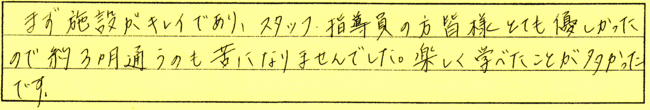 まず施設がキレイであり、スタッフ・指導員の方皆様とても優しかった
ので約3ヶ月通うのも苦になりませんでした。楽しく学べたことが多かった
です。